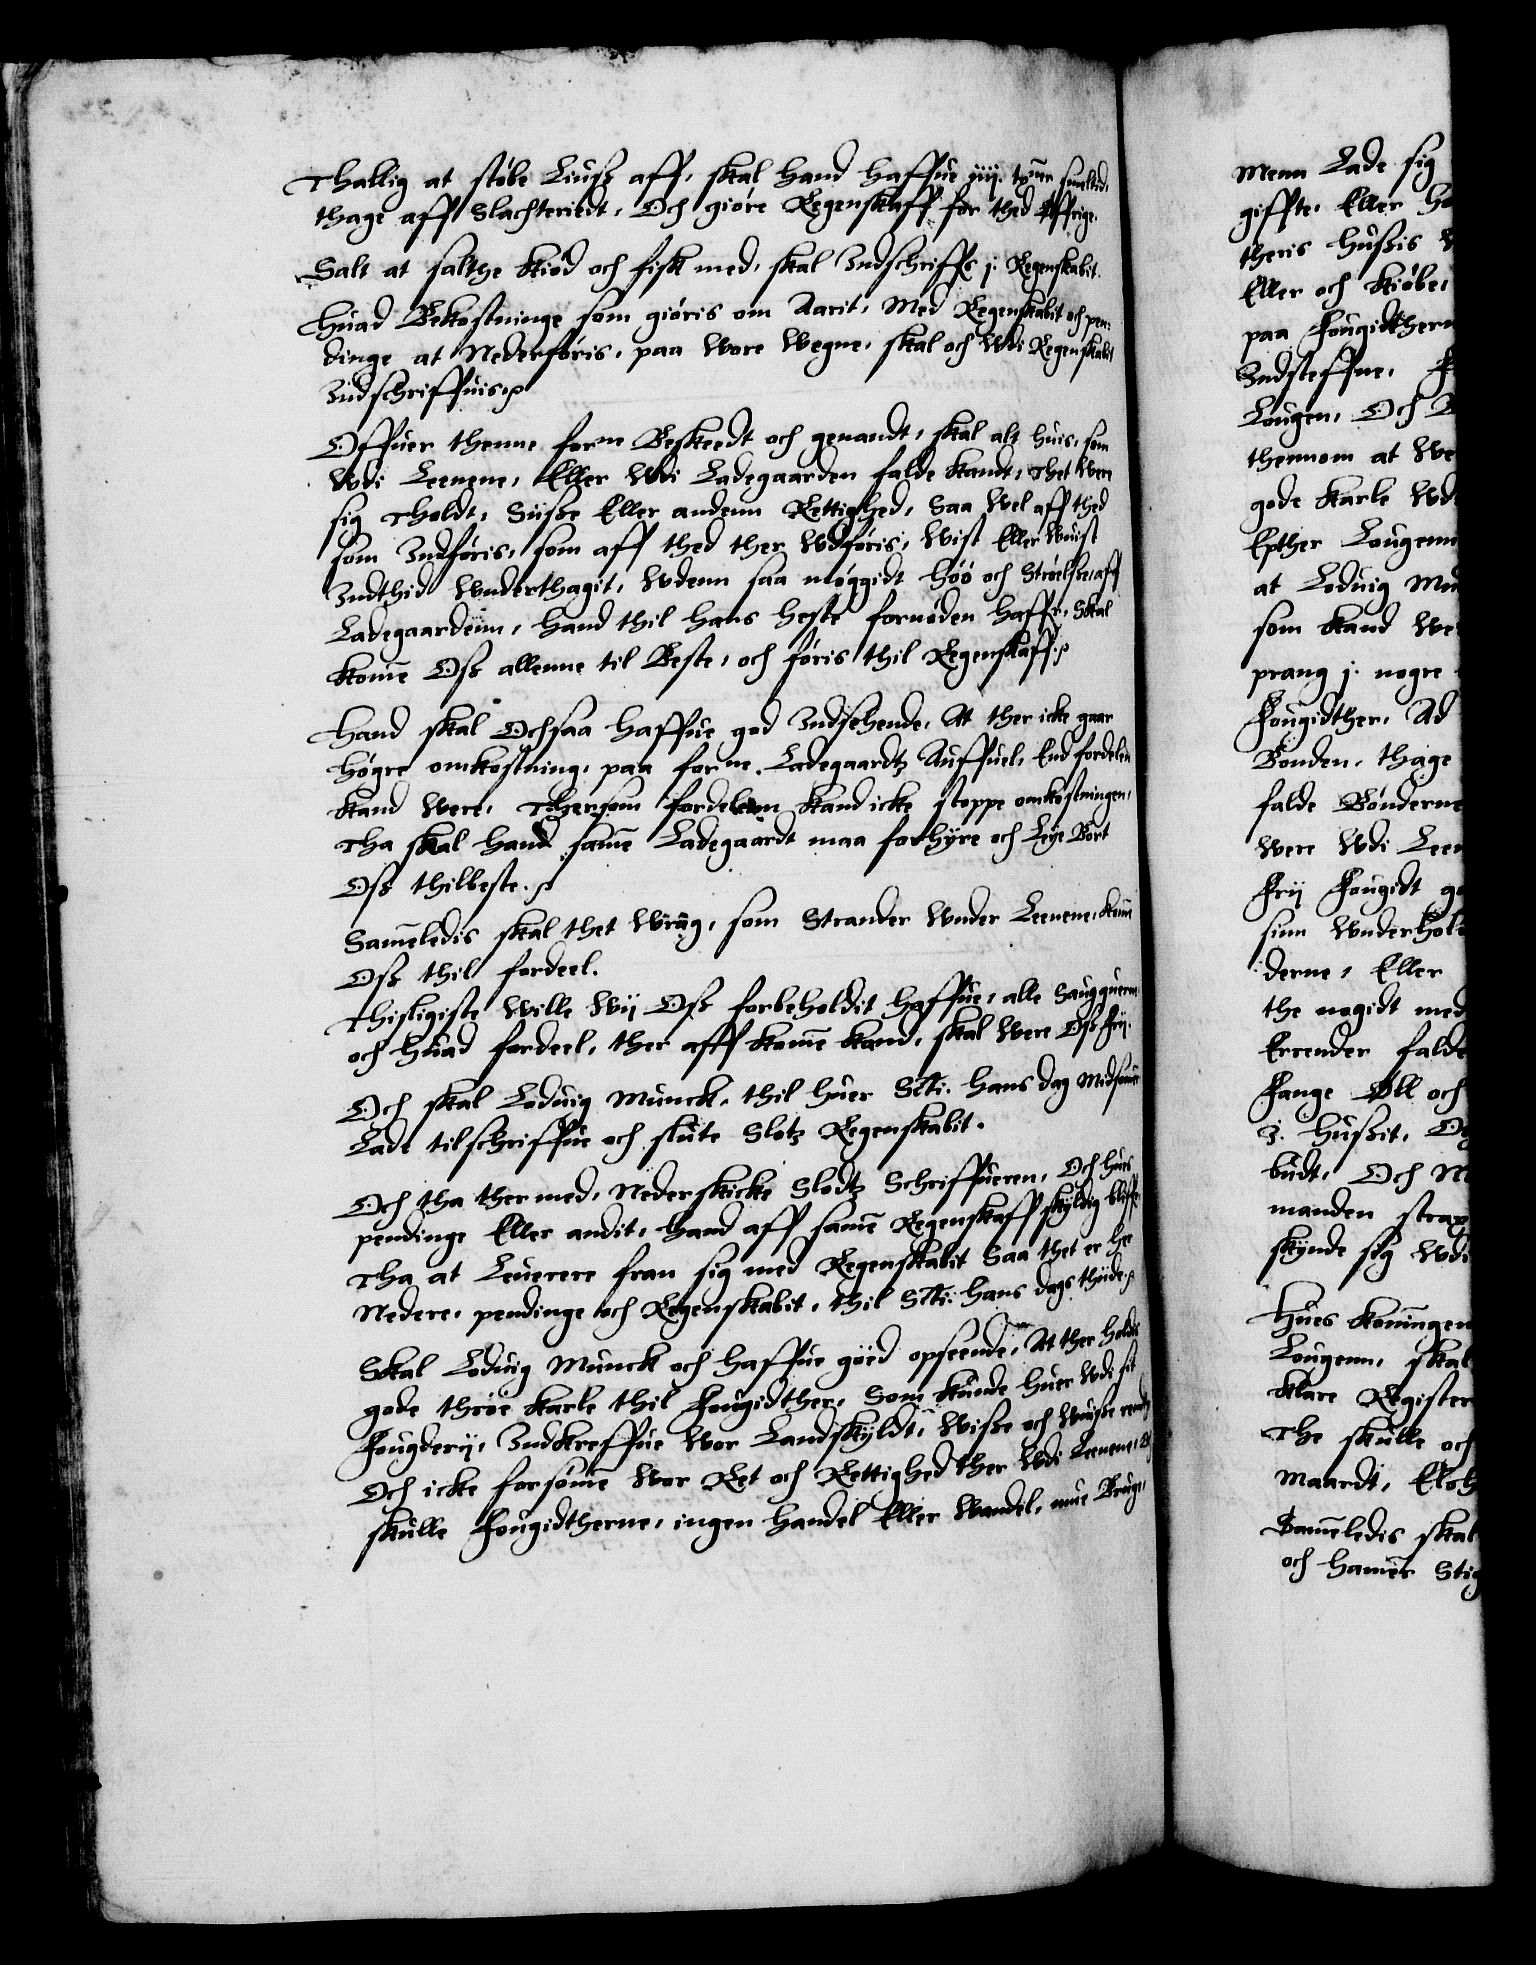 Thallig at støbe Liuss aff, skal hand haffue iiij. tønner smeltid,
thage aff Slachteriedt, Och giøre Regenskaff for thed Øffrige.
Salt at salthe kiød och fisk med, skal Indschriffs j. Regenskabit.
Huad Bekostninge som giøris om Aarit, Med Regenskabit och pen:
dinge at Nederføris, paa wore wegne, skal och Wdi Regenskabit
Indschriffuis.
Offuer thenne forne Beskeedt och genandt, skal alt huis, som
Wdi Leenene, Eller Wdi Ladegaarden falde kandt, Thet Were
sig Tholdt, Siisse Eller andenn Rettighed, Saa Wel aff thed
som Indføris, som aff thed ther Wdføris, Wist Eller Wuist
Indthid Wnderthagit, Wdenn saa møggidt Høø och Strøelsse, aff
Ladegaardenn, hand thil hans heste fornøden haffr, Skal
komē Oss allenne til Beste, och føris thil Regenskaff.
Hand skal Ochsaa haffue god Indsehende, At ther icke gaar
høgre omkostning, paa forne. Ladegaardtz Auffuel, End fordelen
kand were, Thersom fordelenn kand icke stoppe omkostningen,
Tha skal hand samē Ladegaardt maa forhyre och Leye Bort
Oss thilbeste.
Samēledis skal thet Wrag, som Strander Wnder Leenene, komē
Oss thil fordeel.
Thisligiste wille Wij Oss forbeholdit haffue, alle Saugquerne
och huad fordeel, ther aff komē kand, skal were Oss frij.
Och skal Loduig Munck, thil huer Scti. Hans dag Midsomer
Lade tilschriffue och slute Slotz Regenskabit.
Och tha ther med, Nederskicke Slodtz Schriffueren, Och huis
pendinge Eller andit, hand aff samē Regenskaff skyldig bliffr
Tha at Leuerere fran sig med Regenskabit Saa thet er her
Nedere, pendinge och Regenskabit, thil Scti. Hans dags thyde.
Skal Loduig Munck och haffue goed opseende, At ther holdis
gode throe karle thil Fougidther, Som kunde huer Wdi sit
Fougderij, Indkreffue Wor Landskyldt, Wisse och Wuisse rendte
Och icke forsømē Wor Ret och Rettighed ther Wdi Leenene, Och
skulle Fougidtherne, ingen handel Eller Wandel, mue Bruge,
Menn Lade sig
giffte, Eller
theris hussis
Eller och kiøbe,
paa Fougidthern
Indsteffne,
Lougen, Och
thennom at We
gode karle Wd
Epther Lougenn
at Loduig Mu
som kand We
prang j. nogre
Fougidther, Ad
Bonden, thage
falde Bønderne
Were Wdi Leen
Frij Fougidt
sinn Wnderhold
derne, Eller
the nogidt med
Errender falde
Fange Øll och
I. Hussit,
budt, Och
manden strax
skynde sig Wdi
Hues koningen
Lougenn, skal
klare Register
The skulle och
Maardt,
Samēledis skal
och hamēr